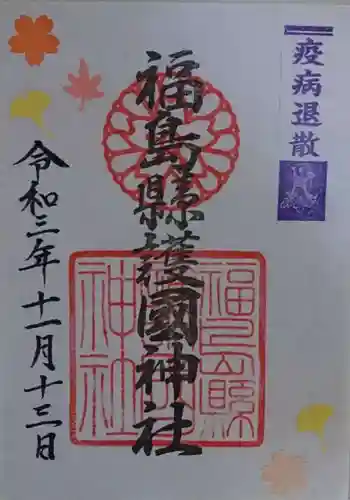 疫病退散
福島縣護國神社
令和三年十一月十三日
福島縣護國神社